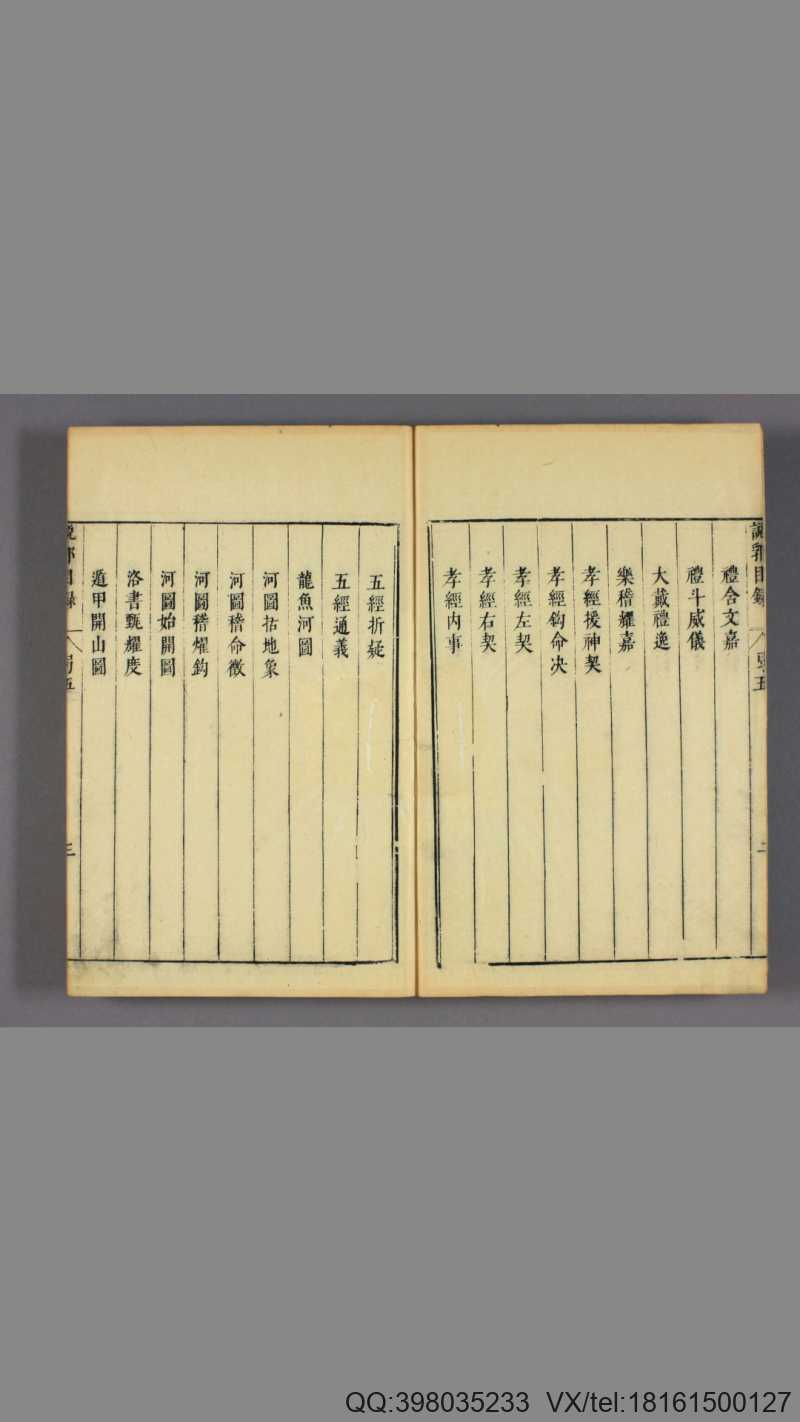 說郛目錄 弓五 二
禮含文嘉
禮斗威儀
大戴禮逸
樂稽耀嘉
孝經援神契
孝經鈎命决
孝經左契
孝經右契
孝經内事
五經折疑
五經通義
龍魚河圖
河圖括地象
河圖稽命徵
河圖稽燿鈎
河圖始開圖
洛書甄耀度
遁甲開山圖
說郛目錄 弓五 三
QQ:398035233 VX/tel:18161500127